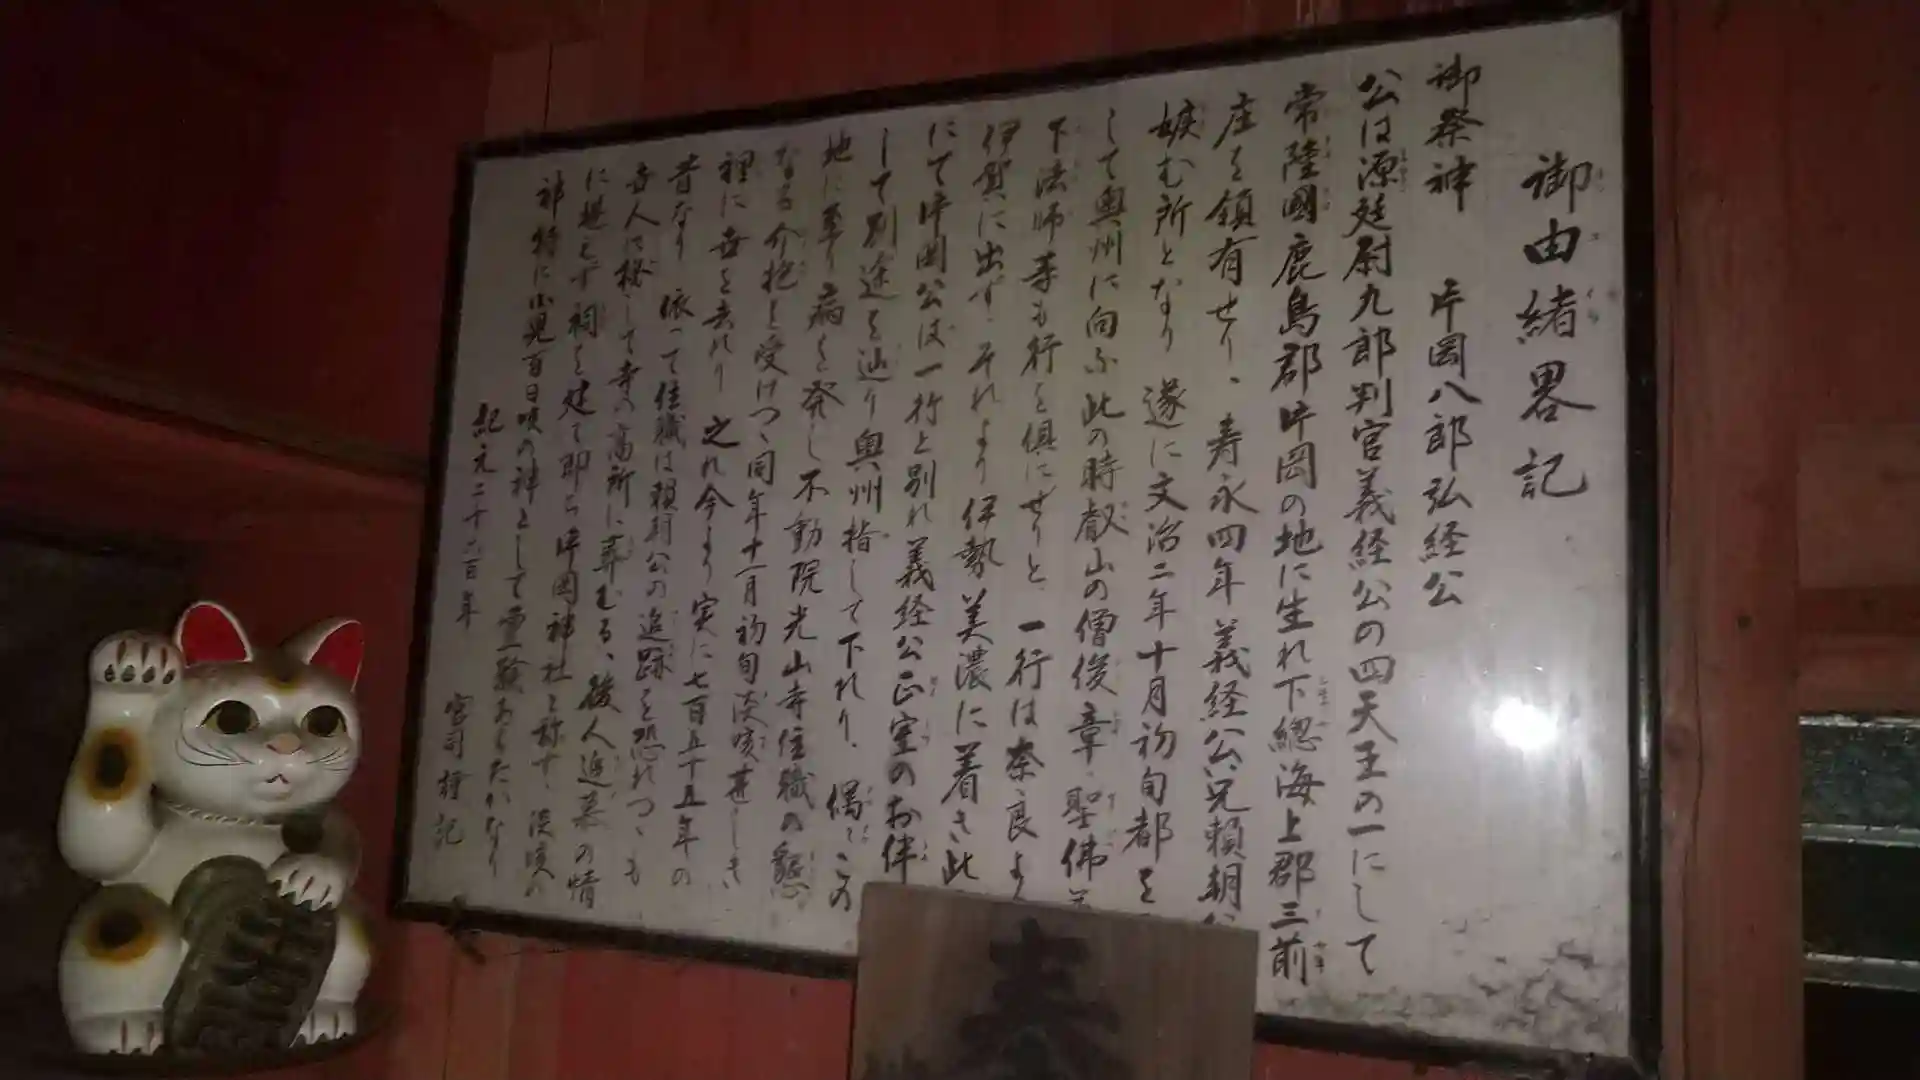 御由緒畧記
御祭神 片岡八郎弘経公
公は源廷尉九郎判官義経公の四天王の一にして
常陸國鹿島郡片岡の地に生れ下總海上郡三前
庄を領有せり、寿永四年義経公兄頼朝公
嫉む所となり 遂に文治二年十月初旬都を
して奥州に向ふ此の時叡山の僧俊章、聖佛
下法師等も行を倶にせりと、一行は奈良よ
伊賀に出ず、それより伊勢美濃に着き此
にて片岡公は一行と別れ義経公正室のお伴
して別途を辿り奥州指して下れり、偶々この
地に至り病を発し不動院光山寺住職の懇
なる介抱を受けつゝ同年十一月初旬淡咳甚しき
裡に世を去れり 之れ今より実に七百五十五年の
昔なり 依って住職は頼朝公の追跡を恐れつゝも
世人に秘して寺の高所に葬むる、後人追慕の情
に堪えず祠を建て即ち片岡神社と称す、淡咳の
神特に小児百日咳の神として霊験あらたかなり
紀元二千六百年 宮司 記
奉